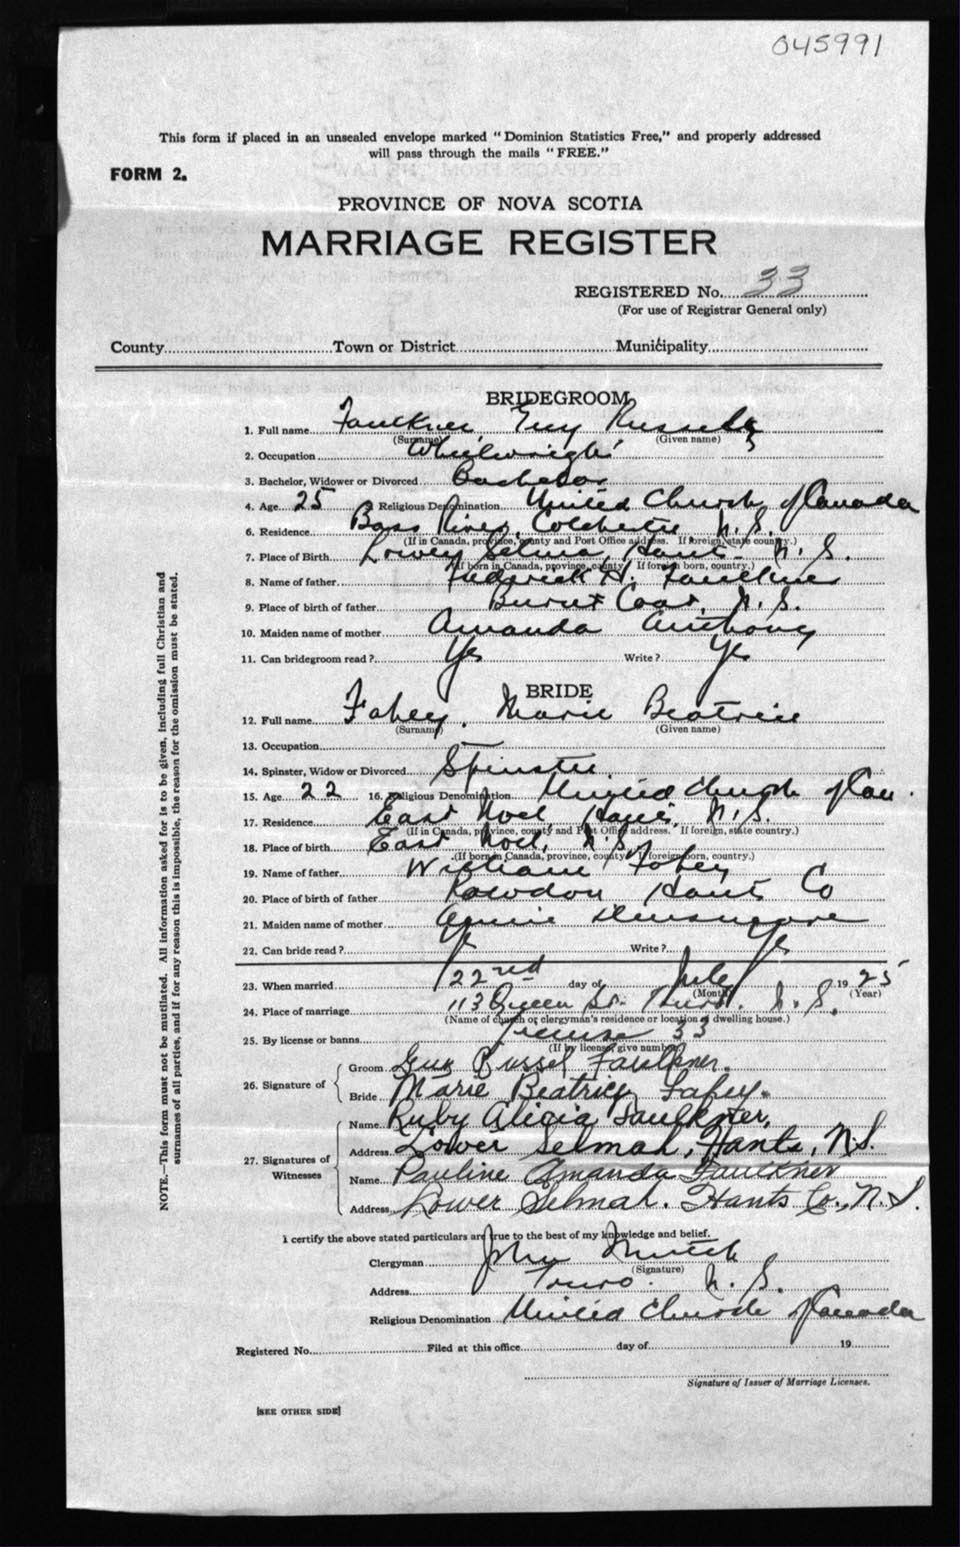 045991
This form if placed in an unsealed envelope marked "Dominion Statistics Free," and properly addressed
will pass through the mails "FREE."
FORM 2.
PROVINCE OF NOVA SCOTIA
MARRIAGE REGISTER
REGISTERED No. 33
(For use of Registrar General only)
County Town or District Municipality
BRIDEGROOM
1. Full name Faulkner, Guy Russell
(Surname) (Given name)
2. Occupation Wheelwright
3. Bachelor, Widower or Divorced Bachelor
4. Age 25 Religious Denomination United Church of Canada
6. Residence Bass River, Colchester N.S.
(If in Canada, province, county and Post Office address. If foreign, state country.)
7. Place of Birth Lower Selma, Hants N.S.
(If born in Canada, province, county. If foreign born, country.)
8. Name of father Frederick H. Faulkner
9. Place of birth of father Burnt Coat, N.S.
10. Maiden name of mother Amanda Anthony
11. Can bridegroom read? Yes Write? Yes
BRIDE
12. Full name Fahey, Marie Beatrice
(Surname) (Given name)
13. Occupation
14. Spinster, Widow or Divorced Spinster
15. Age 22 16. Religious Denomination United Church of Can.
17. Residence East Noel, Hants, N.S.
(If in Canada, province, county and Post Office address. If foreign, state country.)
18. Place of birth East Noel, N.S.
(If born in Canada, province, county. If foreign born, country.)
19. Name of father William Fahey
20. Place of birth of father Rawdon Hants Co
21. Maiden name of mother Annie Densmore
22. Can bride read? Yes Write? Yes
23. When married 22nd day of July 1925
(Month) (Year)
24. Place of marriage 113 Queen St. Truro, N.S.
(Name of church or clergyman's residence or location of dwelling house.)
25. By license or banns License 33
(If by license, give number)
26. Signature of
Groom Guy Russel Faulkner.
Bride Marie Beatrice Fahey.
27. Signatures of Witnesses
Name Ruby Alicia Faulkner,
Address Lower Selmah, Hants, N.S.
Name Pauline Amanda Faulkner
Address Lower Selmah. Hants Co., N.S.
I certify the above stated particulars are true to the best of my knowledge and belief.
Clergyman John
(Signature)
Address Truro. N.S.
Religious Denomination United Church of Canada
Registered No. Filed at this office day of 19
Signature of Issuer of Marriage Licenses.
[SEE OTHER SIDE]
NOTE.—This form must not be mutilated. All information asked for is to be given, including full Christian and
surnames of all parties, and if for any reason this is impossible, the reason for the omission must be stated.